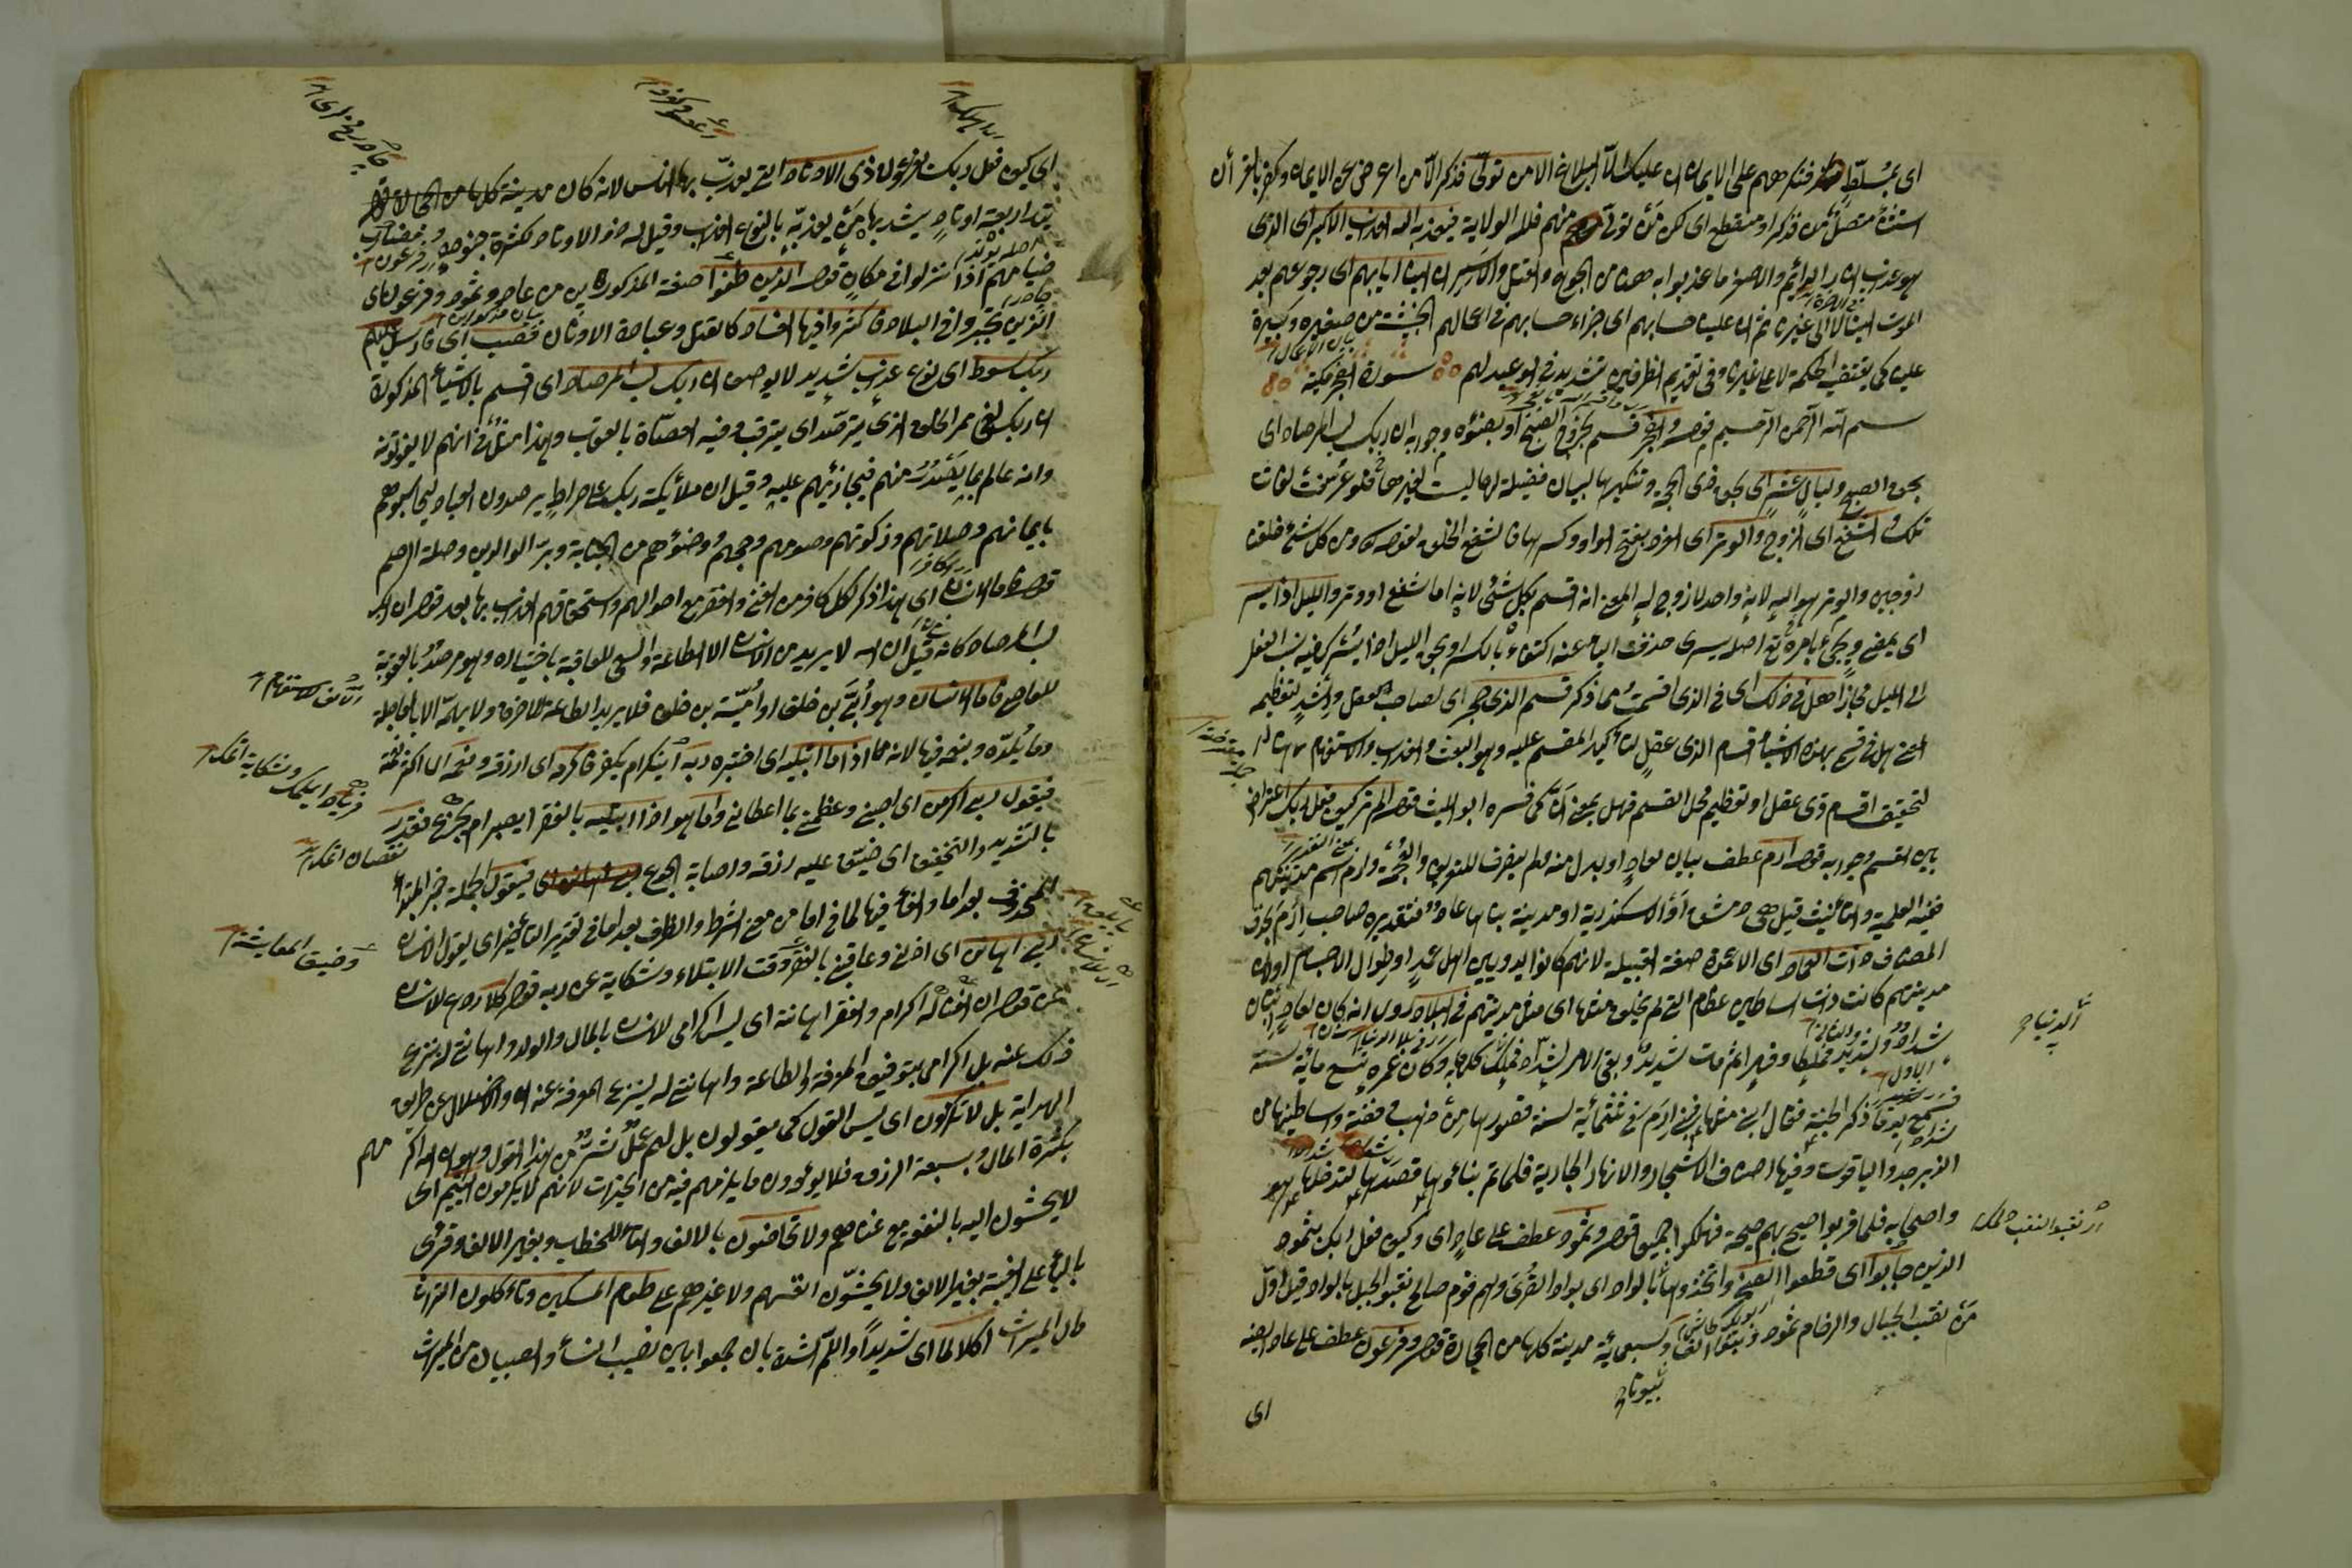 اى بمسلط فتكرههم على الايمان ان عليك الا البلاغ الا من تولى فذكر الا من اعرض عن الايمان وكفر بالقرأن
استثناء متصل من فذكر او منقطع اى لكن من تولى منهم فلله الولاية فيعذبه الله العذاب الاكبر اى الذى
هو عذاب النار الدائم والاصغر ما عذبوا به من الجوع والقتل والاسر ان الينا ايابهم اى رجوعهم بعد
الموت الينا لا الى غيرنا ثم ان علينا حسابهم اى جزاء حسابهم فى اعمالهم الخبيثة من صغيرة وكبيرة
علينا كما يقتضى الحكمة لا على غيرنا وفى تقديم الظرفين تشديد فى الوعيد لهم سورة الفجر مكية
بسم الله الرحمن الرحيم قوله والفجر قسم بخروج الصبح او بضوئه وجوابه ان ربك لبالمرصاد اى
بحق الصبح وليال عشر اى بحق ذى الحجة وتنكيرها لبيان فضيلة لها ليست لغيرها فلو عرفت لفات
تلك والشفع اى الزوج والوتر اى الفرد بفتح الواو وكسرها فالشفع الخلق لقوله ومن كل شئ خلقنا
زوجين والوتر هو الله لانه واحد لا زوج له المعنى انه قسم بكل شئ لانه اما شفع او وتر والليل اذا يسر
اى يمضى ويجئ بامره تع اصله يسرى حذفت الياء عنه اكتفاء بالكسر اى بحق الليل اذا يسر فيه نسب الفعل
الى الليل مجازا هل فى ذلك اى فى الذى اقسمت مما ذكر قسم لذى حجر اى لصاحب العقل والرشد لتعظيمه
المعنى هل فى قسم بهذه الاشياء قسم لذى عقل لتأكيد المقسم عليه وهو البعث والعذاب والاستفهام ههنا
لتحقيق اقسام ذوى عقل او تعظيم محل القسم فهل بمعنى ان كما فسره ابو الليث قوله الم تر كيف فعل ربك اعتراض
بين القسم وجوابه قوله ارم عطف بيان لعاد او بدل منه ولم يصرف للتعريف والعجمة وارم اسم مدينتهم
ففيه العلمية والتأنيث قيل هى دمشق او الاسكندرية او مدينة بناها عاد فتقديره صاحب ارم بحذف
المضاف ذات العماد اى الاعمدة صفة القبيلة لانهم كانوا بدويين اهل عمد او طوال الاجسام او لان
مدينتهم كانت ذات اساطين عظام التى لم يخلق مثلها اى مثل مدينتهم فى البلاد روى انه كان لعاد ابنان
شداد وشديد فملكا وقهرا ثم مات شديد وبقى الامر لشداد فملك كلها وكان عمره تسع مائة سنة
فسمع يوما ذكر الجنة فقال ابنى مثلها فبنى ارم فى ثلثمائة سنة قصورها من ذهب وفضة واساطينها من
الزبرجد والياقوت وفيها اصناف الاشجار والانهار الجارية فلما تم بناؤها قصدها لتدخلها هو
واصحابه فلما قربوا صيح بهم صيحة فهلكوا جميعا قوله وثمود عطف على عاد اى وكيف فعل ربك بثمود
الذين جابوا اى قطعوا الصخر واتخذوها بالواد اى بواد القرى وهم قوم صالح نقبوا الجبل بالواد قيل اول
من نقب الجبال والرخام ثمود وبنوا الفا وسبعمائة مدينة كلها من الحجارة قوله وفرعون عطف على عاد ايضا
اى
اى كيف فعل ربك بفرعون ذى الاوتاد التى يعذب بها الناس لانه كان
يتد اربعة اوتاد يشد بها من يعذبه بانواع العذاب وقيل له ذو الاوتاد لكثرة جنوده ومضارب
خيامهم اذا نزلوا فى مكان قوله الذين طغوا صفة المذكورين من عاد وثمود وفرعون اى
الذين تجبروا فى البلاد فاكثروا فيها الفساد كالقتل وعبادة الاوثان فصب اى فارسل عليهم
ربك سوط اى نوع عذاب شديد لا يوصف ان ربك لبالمرصاد اى اقسم بالاشياء المذكورة
ان ربك لفى ممر الخلق الذى يترصد اى يترقب فيه العصاة بالعقاب وهذا مثل فى انهم لا يفوتونه
وانه عالم بما يصدر منهم فيجازيهم عليه وقيل ان ملائكة ربك على صراط يرصدون العباد ليحاسبوهم
بايمانهم وصلاتهم وزكوتهم وصومهم وحجهم ووضوئهم من الجنابة وبر الوالدين وصلة الرحم
قوله فاما الانسان اى هذا ذكر لكل كافر من الغنى والفقر مع احوالهم واستحقاقهم العذاب بها بعد قوله ان ربك
لبالمرصاد كانه قيل ان الله لا يريد من الانسان الا الطاعة والسعى للعاقبة باختياره وهو مرصد بالعقوبة
للعاصى فاما الانسان وهو ابى بن خلف او امية بن خلف فلا يريد الطاعة للاخرة ولا يهمه الا العاجلة
وما يلذه وينعمه فيها لانه اذا ما ابتليه اى اختبره ربه ايشكر ام يكفر فاكرمه اى ارزقه ونعمه اى اكثر نعمه
فيقول ربى اكرمن اى احبنى وعظمنى بما اعطانى واما هو اذا ابتليه بالفقر ايصبر ام يجزع فقدر
بالتشديد والتخفيف اى ضيق عليه رزقه واصابه الجوع فيقول الجملة خبر المبتدأ
المحذوف بعد اما والفاء فيها لما فى اما من معنى الشرط والظرف بعد اما فى تقدير التأخير اى يقول الانسان
ربى اهانن اى اذلنى وعاقبنى بالفقر وقت الابتلاء وشكاية عن ربه قوله كلا ردع للانسان
عن قوله ان الغنى له اكرام والفقر اهانة اى ليس اكرامى لانسان بالمال والولد واهانتى له بنزع
ذلك عنه بل اكرامى بتوفيق المعرفة والطاعة واهانتى له بنزع المعرفة عنه والاضلال عن طريق
الهداية بل لا تكرمون اى ليس القول كما يقولون بل لهم عمل شر من هذا القول وهو ان الله اكرمهم
بكثرة المال وبسعة الرزق فلا يؤدون ما يلزمهم فيه من الخيرات لانهم لا يكرمون اليتيم اى
لا يحسنون اليه بالنفقة مع غناهم ولا تحاضون بالالف والتاء للخطاب وبغير الالف وقرئ
بالياء على الغيبة بغير الالف ولا يحثون انفسهم ولا غيرهم على طعام المسكين وتأكلون التراث
مال الميراث اكلا لما اى شديدا واللم الشدة بان جمعوا بين نصيب النساء والصبيان من الميراث